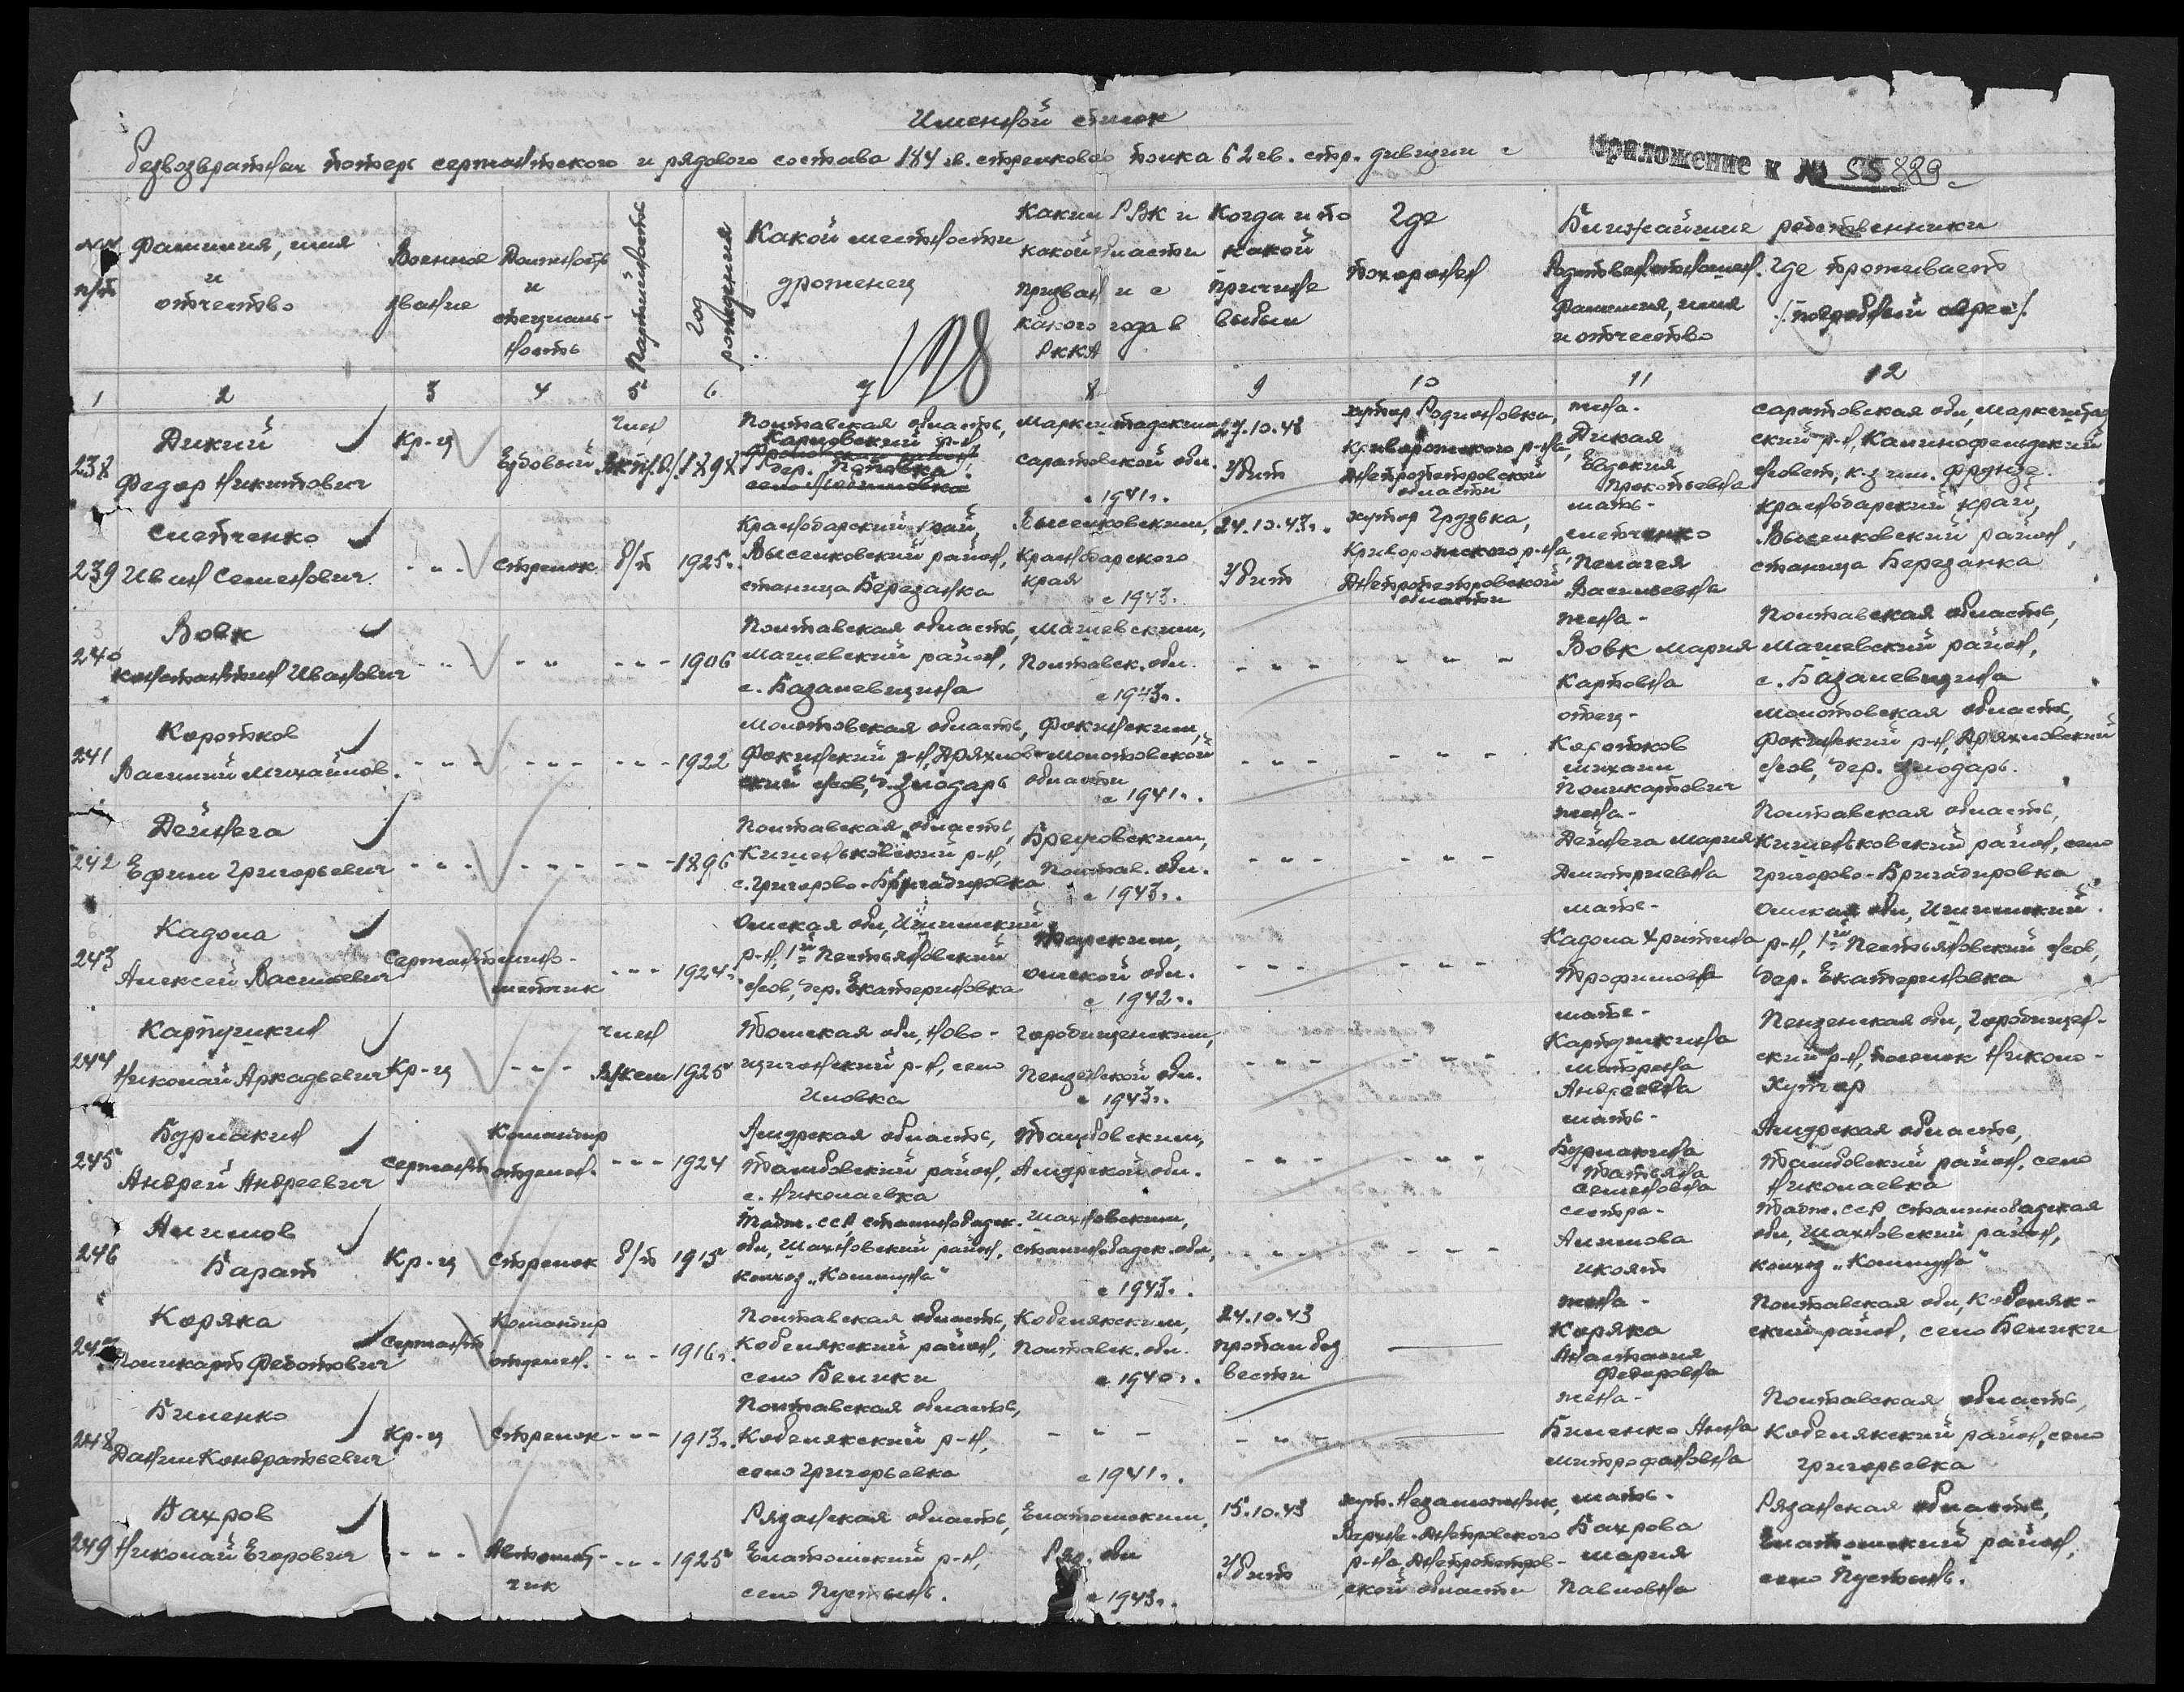 Именной список
безвозвратных потерь сержантского и рядового состава 184 гв. стрелкового полка 62 гв. стр. дивизии с
Приложение к № 55889с
№№ п/п
Фамилия, имя и отчество
Военное звание
Должность и специальность
Партийность
Год рождения
Какой местности уроженец
Каким РВК и какой области призван и с какого года в РККА
Когда и по какой причине выбыл
Где похоронен
Ближайшие родственники
Фамилия, имя и отчество
Где проживают /: подробный адрес :/
1 2 3 4 5 6 7 8 9 10 11 12
238 Дикий Федор Никитович
Кр-ц
Ездовый
Член
1898
Полтавская область, Карловский р-н, дер. Поповка
Марксштадским Саратовской обл. с 1941 г.
27.10.43 Убит
хутор Родионовка, Криворожского р-на, Днепропетровской области
жена - Дикая Евдокия Прокопьевна
Саратовская обл, Марксштадский р-н, совет, к-з им. Фрунзе.
239 Слепченко Иван Семенович
- " -
стрелок
б/п
1925.
Краснодарский край, Выселковский район, станица Березанка
Выселковским, Краснодарского края с 1943 г.
24.10.43 г. Убит
хутор Грузька, Криворожского р-на, Днепропетровской области
мать - Слепченко Пелагея Васильевна
Краснодарский край, Выселковский район, станица Березанка
240 Вовк Константин Иванович
- " -
- " -
- " -
1906
Полтавская область, Машевский район, с. Базалевщина
Машевским, Полтавск. обл. с 1943 г.
- " -
- " -
жена - Вовк Мария Карповна
Полтавская область, Машевский район, с. Базалевщина
241 Коротков Василий Михайлов.
- " -
- " -
- " -
1922
Молотовская область, Фокинский р-н, Аряжский с/сов, д. Змодарь
Фокинским, Молотовской области с 1941 г.
- " -
- " -
отец - Коротков Михаил Поликарпович
Молотовская область, Фокинский р-н, с/сов, дер.
242 Дейнега Ефим Григорьевич
- " -
- " -
- " -
1896
Полтавская область, Кишеньковский р-н, с. Григорово-Бригадировка
Бреусовским, Полтав. обл. с 1943 г.
- " -
- " -
жена - Дейнега Мария Дмитриевна
Полтавская область, Кишеньковский район, село Григорово-Бригадировка
243 Кадола Алексей Васильевич
Сержант
миномётчик
- " -
1924
Омская обл, Ишимский р-н, 1й с/сов, дер. Екатериновка
Тарским, Омской обл. с 1942 г.
- " -
- " -
мать - Кадола Христина Трофимовна
Омская обл, Ишимский р-н, 1й с/сов, дер. Екатериновка
244 Карпушкин Николай Аркадьевич
Кр-ц
- " -
член
1925
Томская обл, Ново- р-н, село Иловка
Городищенским, Пензенской обл. с 1943 г.
- " -
- " -
мать - Карпушкина Матрена Андреевна
Пензенская обл, Городищенский р-н, поселок Николо-Хутор
245 Бурмакин Андрей Андреевич
Сержант
Командир отделен.
- " -
1924
Амурская область, Тамбовский район, с. Николаевка
Тамбовским, Амурской обл.
- " -
- " -
мать - Бурмакина Татьяна Семеновна
Амурская область, Тамбовский район, село Николаевка
246 Алимов Барат
Кр-ц
стрелок
б/п
1915
Тадж. ССР, Сталинобадск. обл, район, колхоз „Коммуна"
Сталинобадск. обл, с 1943 г.
- " -
- " -
сестра - Алимова Икоят
Тадж. ССР Сталинобадская обл, район, колхоз „Коммуна"
247 Коряка Поликарп Федотович
Сержант
Командир отделен.
- " -
1916 г.
Полтавская область, Кобелякский район, село Белики
Кобелякским, Полтавск. обл. с 1940 г.
24.10.43 пропал без вести
—
жена - Коряка Анастасия Федоровна
Полтавская обл, Кобелякский район, село Белики
248 Биленко Данил Кондратьевич
Кр-ц
стрелок
- " -
1913 г.
Полтавская область, Кобелякский р-н, село Григорьевка
- " - с 1941 г.
- " -
—
жена - Биленко Анна Митрофановна
Полтавская область, Кобелякский район, село Григорьевка
249 Бахров Николай Егорович
- " -
Автоматчик
- " -
1925
Рязанская область, Елатомский р-н, село Пустынь.
Елатомским, Ряз. обл с 1943 г.
15.10.43 Убит
хут. Незаможник, Верхне-Днепровского р-на, Днепропетровской области
мать - Бахрова Мария Павловна
Рязанская область, Елатомский район, село Пустынь.